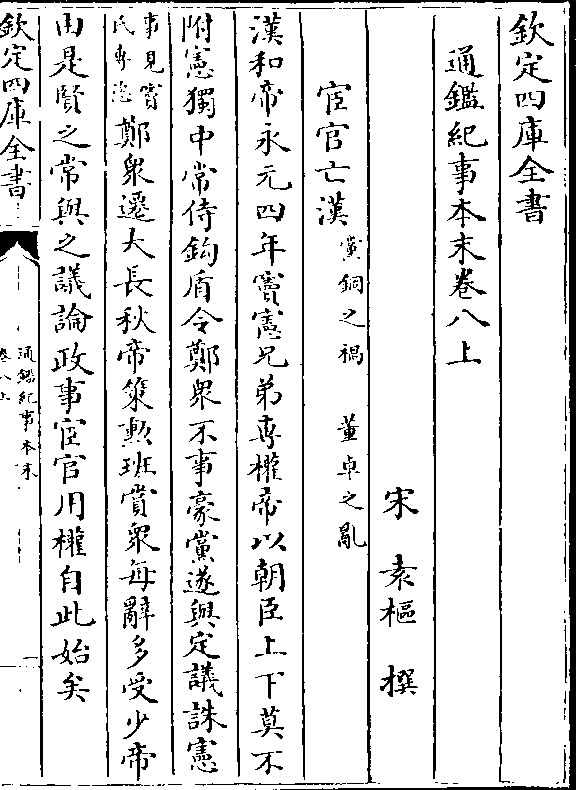 欽定四庫全書
通鑑紀事本末卷八上
宋 袁樞 撰
宦官亡漢 黨錮之禍 董卓之亂
漢和帝永元四年竇憲兄弟專權帝以朝臣上下莫不
附憲獨中常侍鈎盾令鄭衆不事豪黨遂與定議誅憲
事見竇氏專恣鄭衆遷大長秋帝策勲班賞衆每辭多受少帝
由是賢之常與之議論政事宦官用權自此始矣
欽定四庫全書
通鑑紀事本末
卷八上